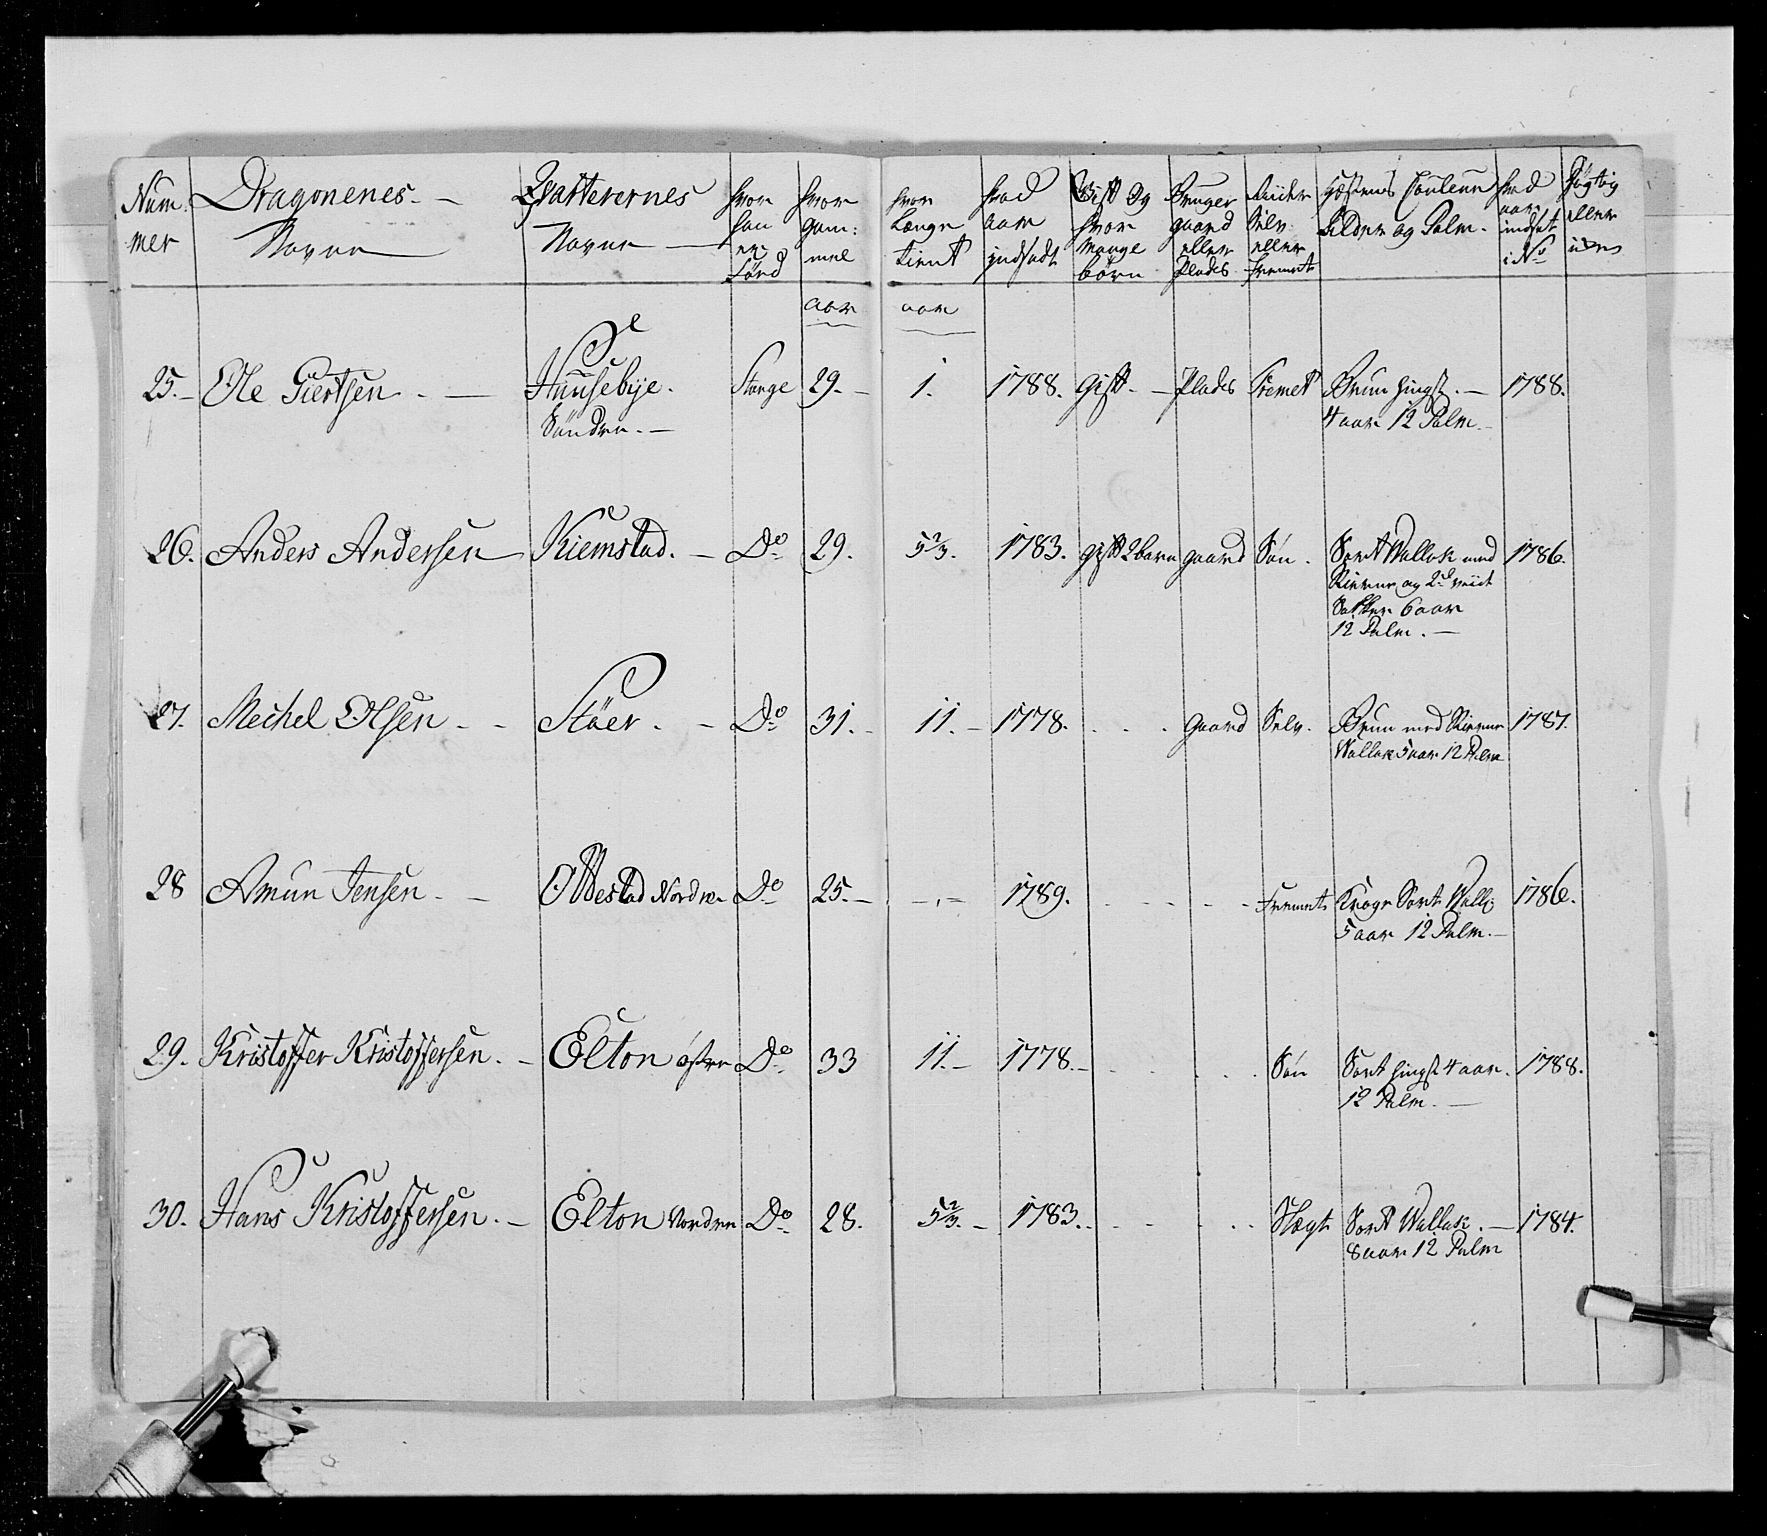 Num- Dragonenes Qvarterernes hvor hvor hvor hvad Gift og Bruger Riider Hæstens Couleur hvad
mer Navne Navne han gam- længe aar hvor gaard Selv Alder og Palm. aar eller
er mel tient indsadt mange eller eller indsat
Fød børn Plads Fremet i No
aar aar
25. Ole Giertsen Huusebye. Stange 29. 1. 1788. Gift Plads Fremet Bruun hingst. 1788.
Søndre. 4 aar 12 Palm.
26. Anders Andersen Kiemstad. Do 29. 5 2/3. 1783. gift 2 barn gaard Søn. Sort Wallak med 1786.
og 2de
6 aar
12 Palm.
27. Mechel Olsen Stöer. Do 31. 11. 1778. gaard Selv. Brun med 1787.
Wallak 5 aar 12 Palm
28 Amun Jensen Ottestad Nordre Do 25. 1789. Fremet Sort Wall: 1786.
5 aar 12 Palm.
29. Kristoffer Kristoffersen. Elton østre Do 33 11. 1778. Søn Sort hingst 4 aar. 1788.
12 Palm.
30. Hans Kristoffersen. Elton Nordre Do 28. 5 2/3. 1783. Slegt Sort Wallak. 1784.
8 aar 12 Palm